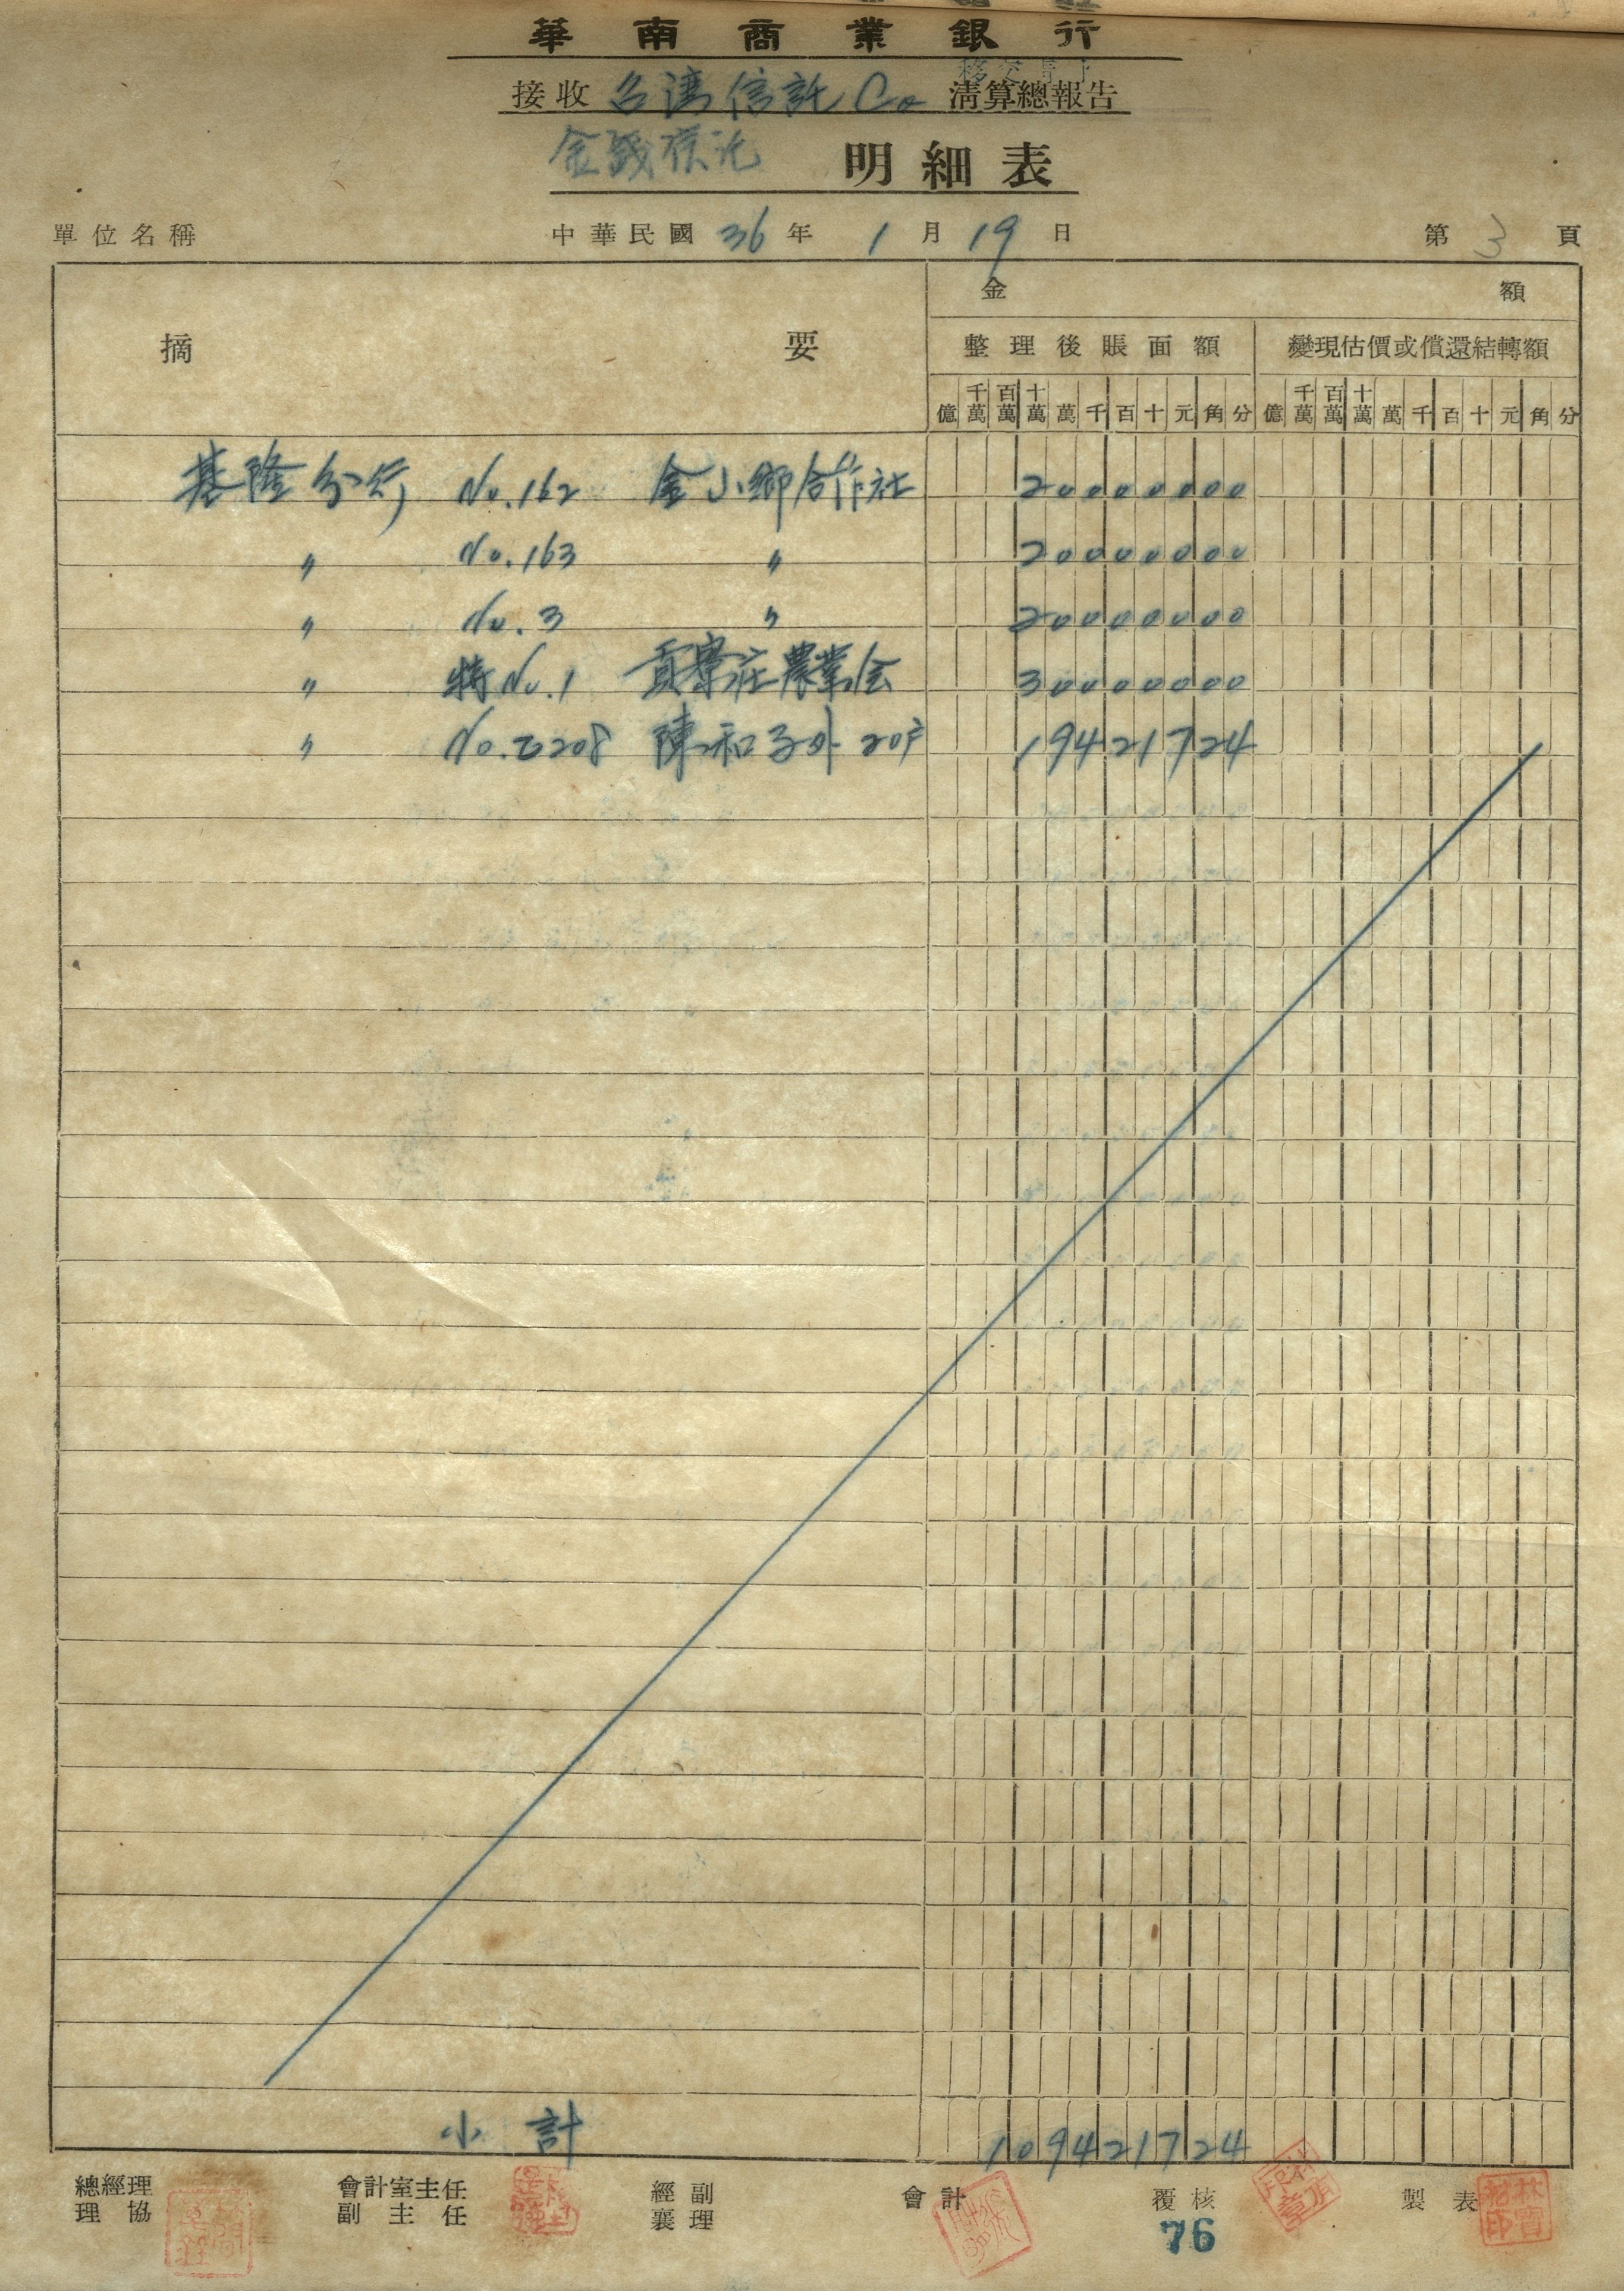 華南商業銀行
移交清冊
接收 台湾信託Co 清算總報告
金錢信託 明細表
單位名稱 中華民國 36 年 1 月 19 日 第 3 頁
摘要 金額
整理後賬面額 變現估價或償還結轉額
億 千萬 百萬 十萬 萬 千 百 十 元 角 分 億 千萬 百萬 十萬 萬 千 百 十 元 角 分
基隆分行 No.162 金山鄉合作社 20000000
〃 No.163 〃 20000000
〃 No.3 〃 20000000
〃 特No.1 貢寮庄農業会 30000000
〃 No.乙208 陳和子外20戶 19421724
小計 109421724
總經理 會計室主任 經副 會計 覆核 製表
協理 副主任 襄理
76